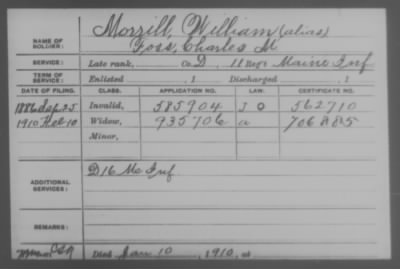 NAME OF SOLDIER: Morrill, William (alias)
Foss, Charles M
SERVICE: Late rank, Co. D, 18 Reg't Maine Inf
TERM OF SERVICE: Enlisted , 1 Discharged , 1
DATE OF FILING. CLASS. APPLICATION NO. LAW. CERTIFICATE NO.
1886 Sep 25 Invalid, 585904 J O 562710
1910 Feb 10 Widow, 935706 a 706885
Minor,
ADDITIONAL SERVICES: D 16 Me Inf.
REMARKS:
Died Jan 10, 1910, at